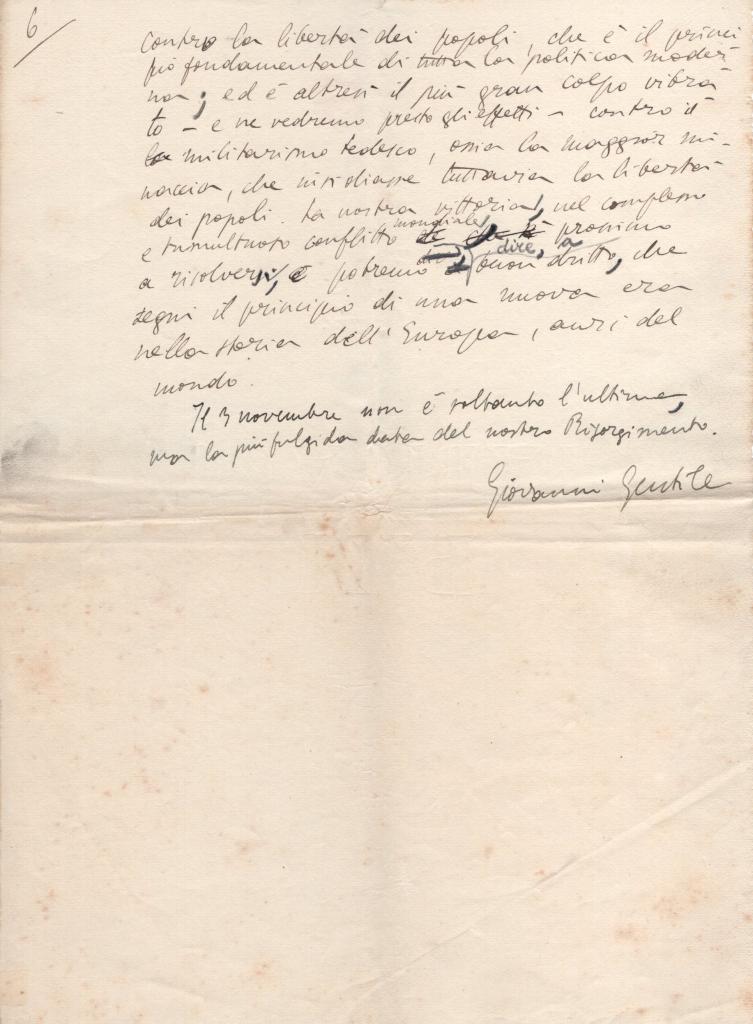 6
contro la libertà dei popoli, che è il princi
pio fondamentale di tutta la politica moder
na; ed è altresì il più gran colpo vibra
to – e ne vedremo presto gli effetti – contro il
militarismo tedesco, ossia la maggior mi-
naccia, che insidiasse tuttavia la libertà
dei popoli. La nostra vittoria, nel complesso
e tumultuoso conflitto mondiale, prossimo
a risolversi, potremo dire, a buon dritto, che
segni il principio di una nuova era
nella storia dell'Europa, anzi del
mondo.
Il 3 novembre non è soltanto l'ultima,
ma la più fulgida data del nostro Risorgimento.
Giovanni Gentile